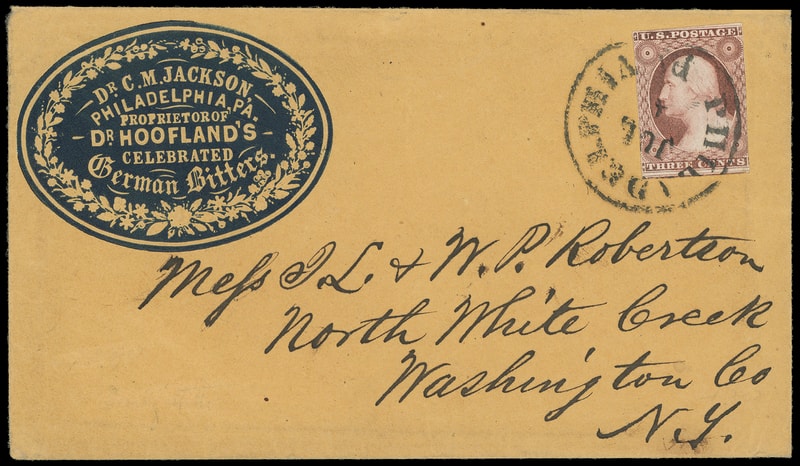 DR C. M. JACKSON,
PHILADELPHIA, PA.
PROPRIETOR OF
DR HOOFLAND'S
CELEBRATED
German Bitters.
U.S. POSTAGE
THREE CENTS
PHILADELPHIA Pa
JUL
Mess J. L. & W. P. Robertson
North White Creek
Washington Co
N.Y.